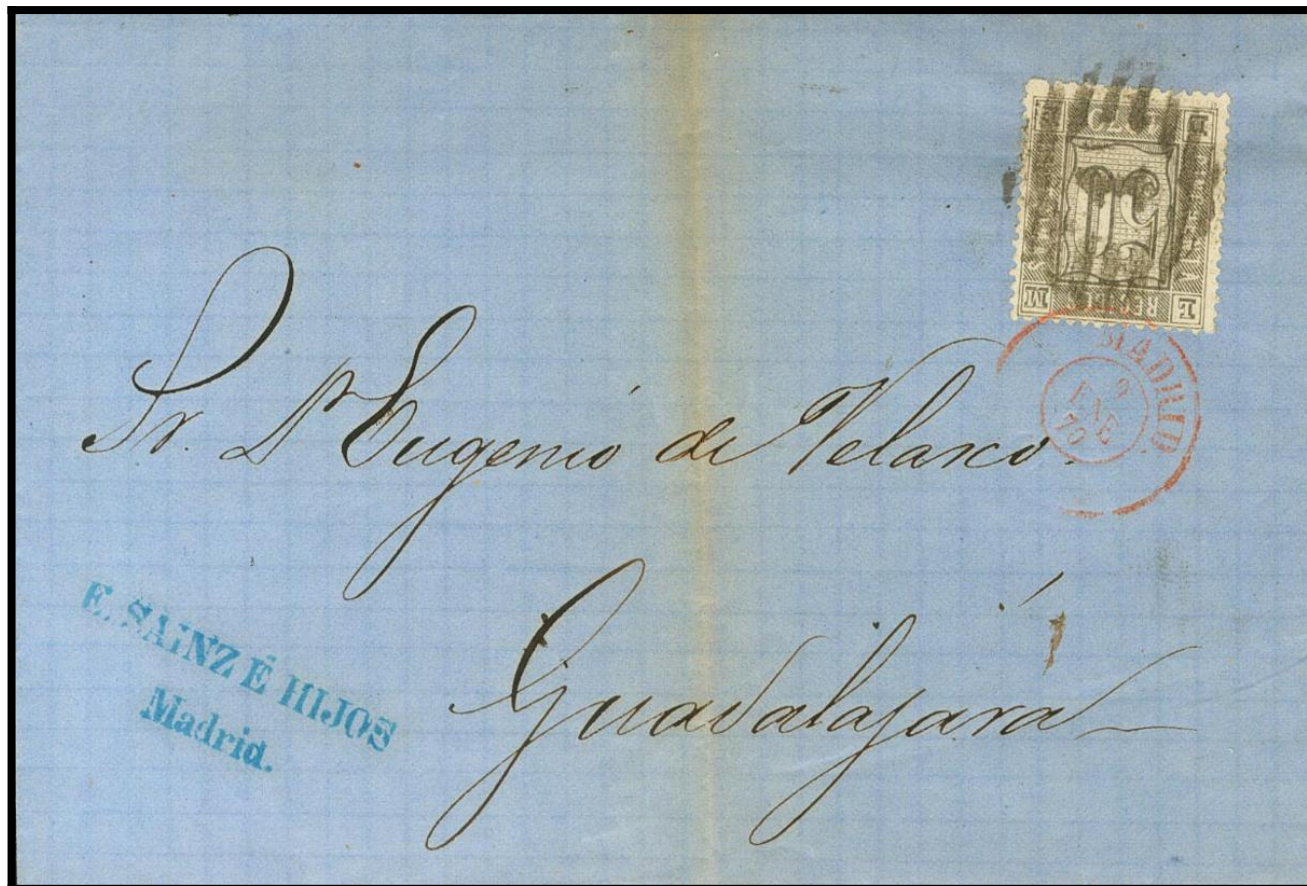 1870
50
RECIBOS
E M
MADRID
9
ENE
70
Sr. Dn Eugenio de Velasco.
Guadalajara
E. SAINZ É HIJOS
Madrid.